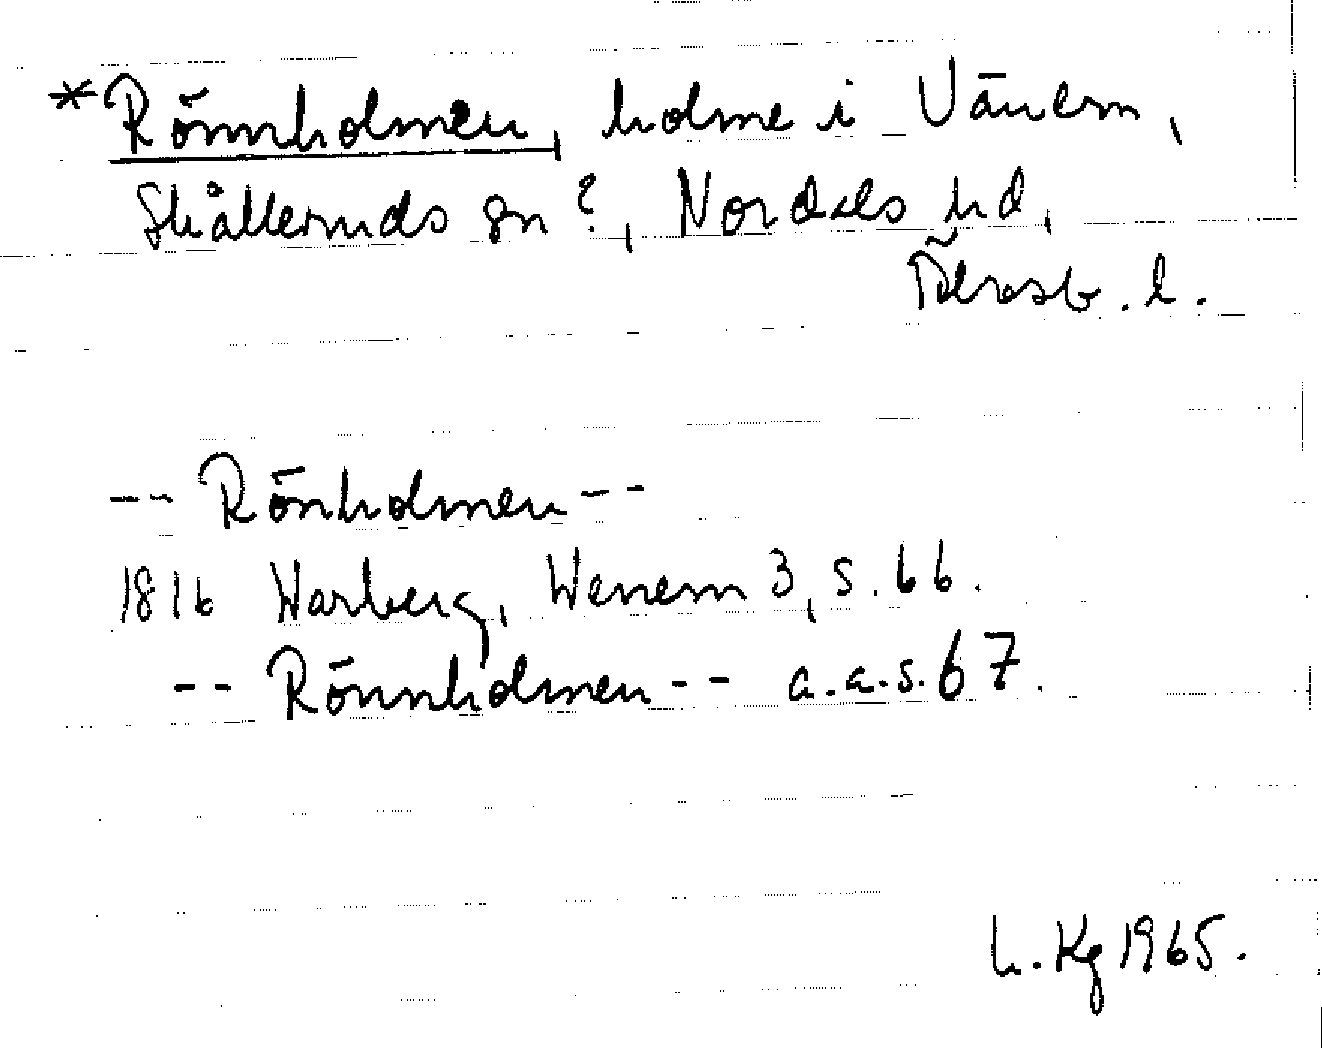 *Rönnholmen, holme i Vänern,
Skålleruds sn?, Nordals hd,
Älvsb. l.
-- Rönholmen --
1816 Warberg, Wenern 3, s. 66.
-- Rönnholmen -- a.a.s. 67.
L. Kg 1965.